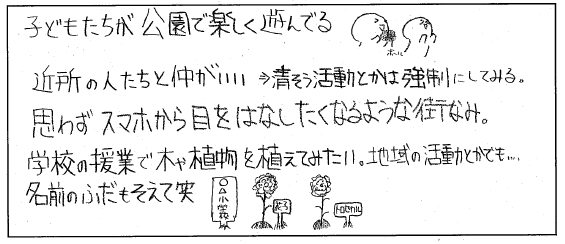 子どもたちが公園で楽しく遊んでる
ボール
近所の人たちと仲がいい ⇒清そう活動とかは強制にしてみる。
思わずスマホから目をはなしたくなるような街なみ。
学校の援業で木や植物を植えてみたい。地域の活動とかでも…
名前のふだもそえて笑
〇△小学校